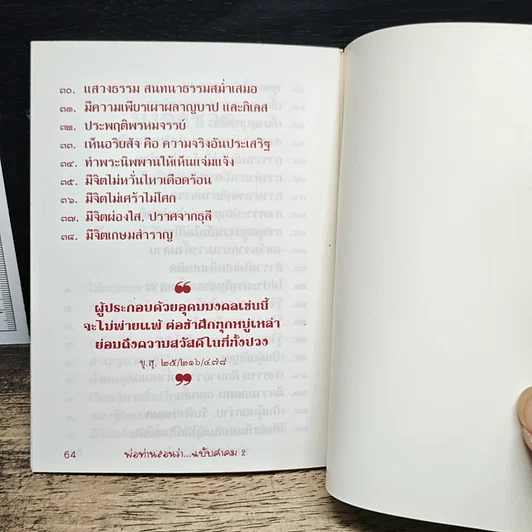 ๓๐. แสวงธรรม สนทนาธรรมสม่ำเสมอ
๓๑. มีความเพียรเผาผลาญบาป และกิเลส
๓๒. ประพฤติพรหมจรรย์
๓๓. เห็นอริยสัจ คือ ความจริงอันประเสริฐ
๓๔. ทำพระนิพพานให้เห็นแจ่มแจ้ง
๓๕. มีจิตไม่หวั่นไหวเดือดร้อน
๓๖. มีจิตไม่เศร้าไม่โศก
๓๗. มีจิตผ่องใส, ปราศจากธุลี
๓๘. มีจิตเกษมสำราญ
“
ผู้ประกอบด้วยอุดมมงคลเช่นนี้
จะไม่พ่ายแพ้ ต่อข้าศึกทุกหมู่เหล่า
ย่อมถึงความสวัสดีในที่ทั้งปวง
ขุ.สุ. ๒๕/๒๑๖/๔๗๘
”
64 พ่อท่านสอนว่า...ฉบับศาคม 2